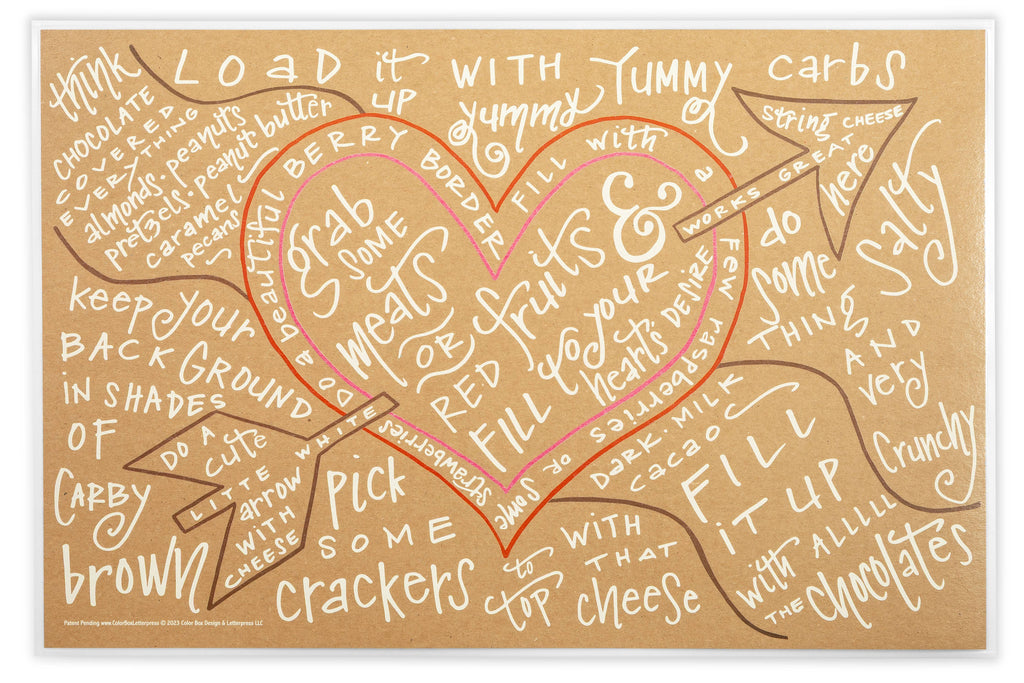 think
CHOCOLATE
COVERED
EVERYTHING
almonds. peanuts
pretzels. peanut butter
caramel
pecans
LOAD it UP
WITH yummy
YUMMY
carbs
string CHEESE
WORKS GREAT
here
do
some
THING
Salty
AND
very
Crunchy
DO a beautiful BERRY BORDER
FILL with a FEW raspberries or
some strawberries
grab
SOME
meats
OR
RED
fruits &
FILL to YOUR
hearts' DESIRE
keep your
BACK GROUND
in SHADES
OF
CARBY
brown
DO A
cute
LITTE
arrow WHITE
WITH
CHEESE
pick
SOME
crackers
to
top
WITH
THAT
cheese
DARK. MILK
cacao
FILL
iT UP
with ALLLLL
THE chocolates
Patent Pending www.ColorBoxLetterpress © 2023 Color Box Design & Letterpress LLC